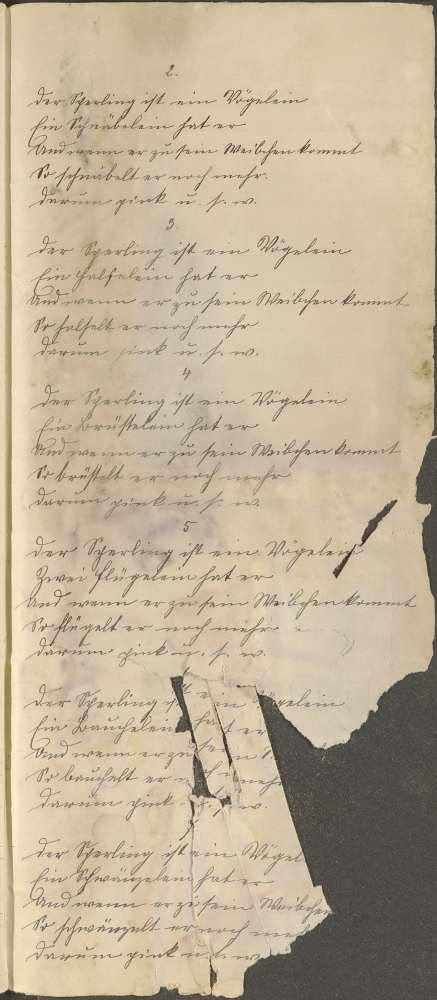 2.
Der Sperling ist ein Vögelein
Ein Schnäbelein hat er
Und wenn er zu sein Weibchen kommt
So schnäbelt er noch mehr.
Darum pink u. s. w.
3.
Der Sperling ist ein Vögelein
Ein Halselein hat er
Und wenn er zu sein Weibchen kommt
So halselt er noch mehr
Darum pink u. s. w.
4
Der Sperling ist ein Vögelein
Ein Brüstelein hat er
Und wenn er zu sein Weibchen kommt
So brüstelt er noch mehr
Darum pink u. s. w.
5
Der Sperling ist ein Vögelein
Zwei Flügelein hat er
Und wenn er zu sein Weibchen kommt
So flügelt er noch mehr
Darum pink u. s. w.
Der Sperling ist ein Vögelein
Ein Bauchelein hat er
Und wenn er zu sein
So bauchelt er noch mehr
Darum pink u. s. w.
Der Sperling ist ein Vögel
Ein Schwänzelein hat er
Und wenn er zu sein Weibchen
So schwänzelt er noch meh
Darum pink u. s. w.